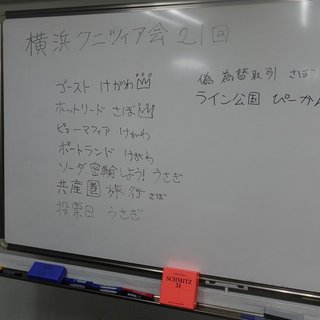 横浜クニツィア会 21回
ゴースト けがわ
ホットリード さば
ピューマフィア けがわ
ポートランド けがわ
ソーダ密輸しよう! うさぎ
共産圏旅行 さば
投票日 うさぎ
偽 為替取引 さば
ライン公国 ぴーかん
SCHMITZ
21